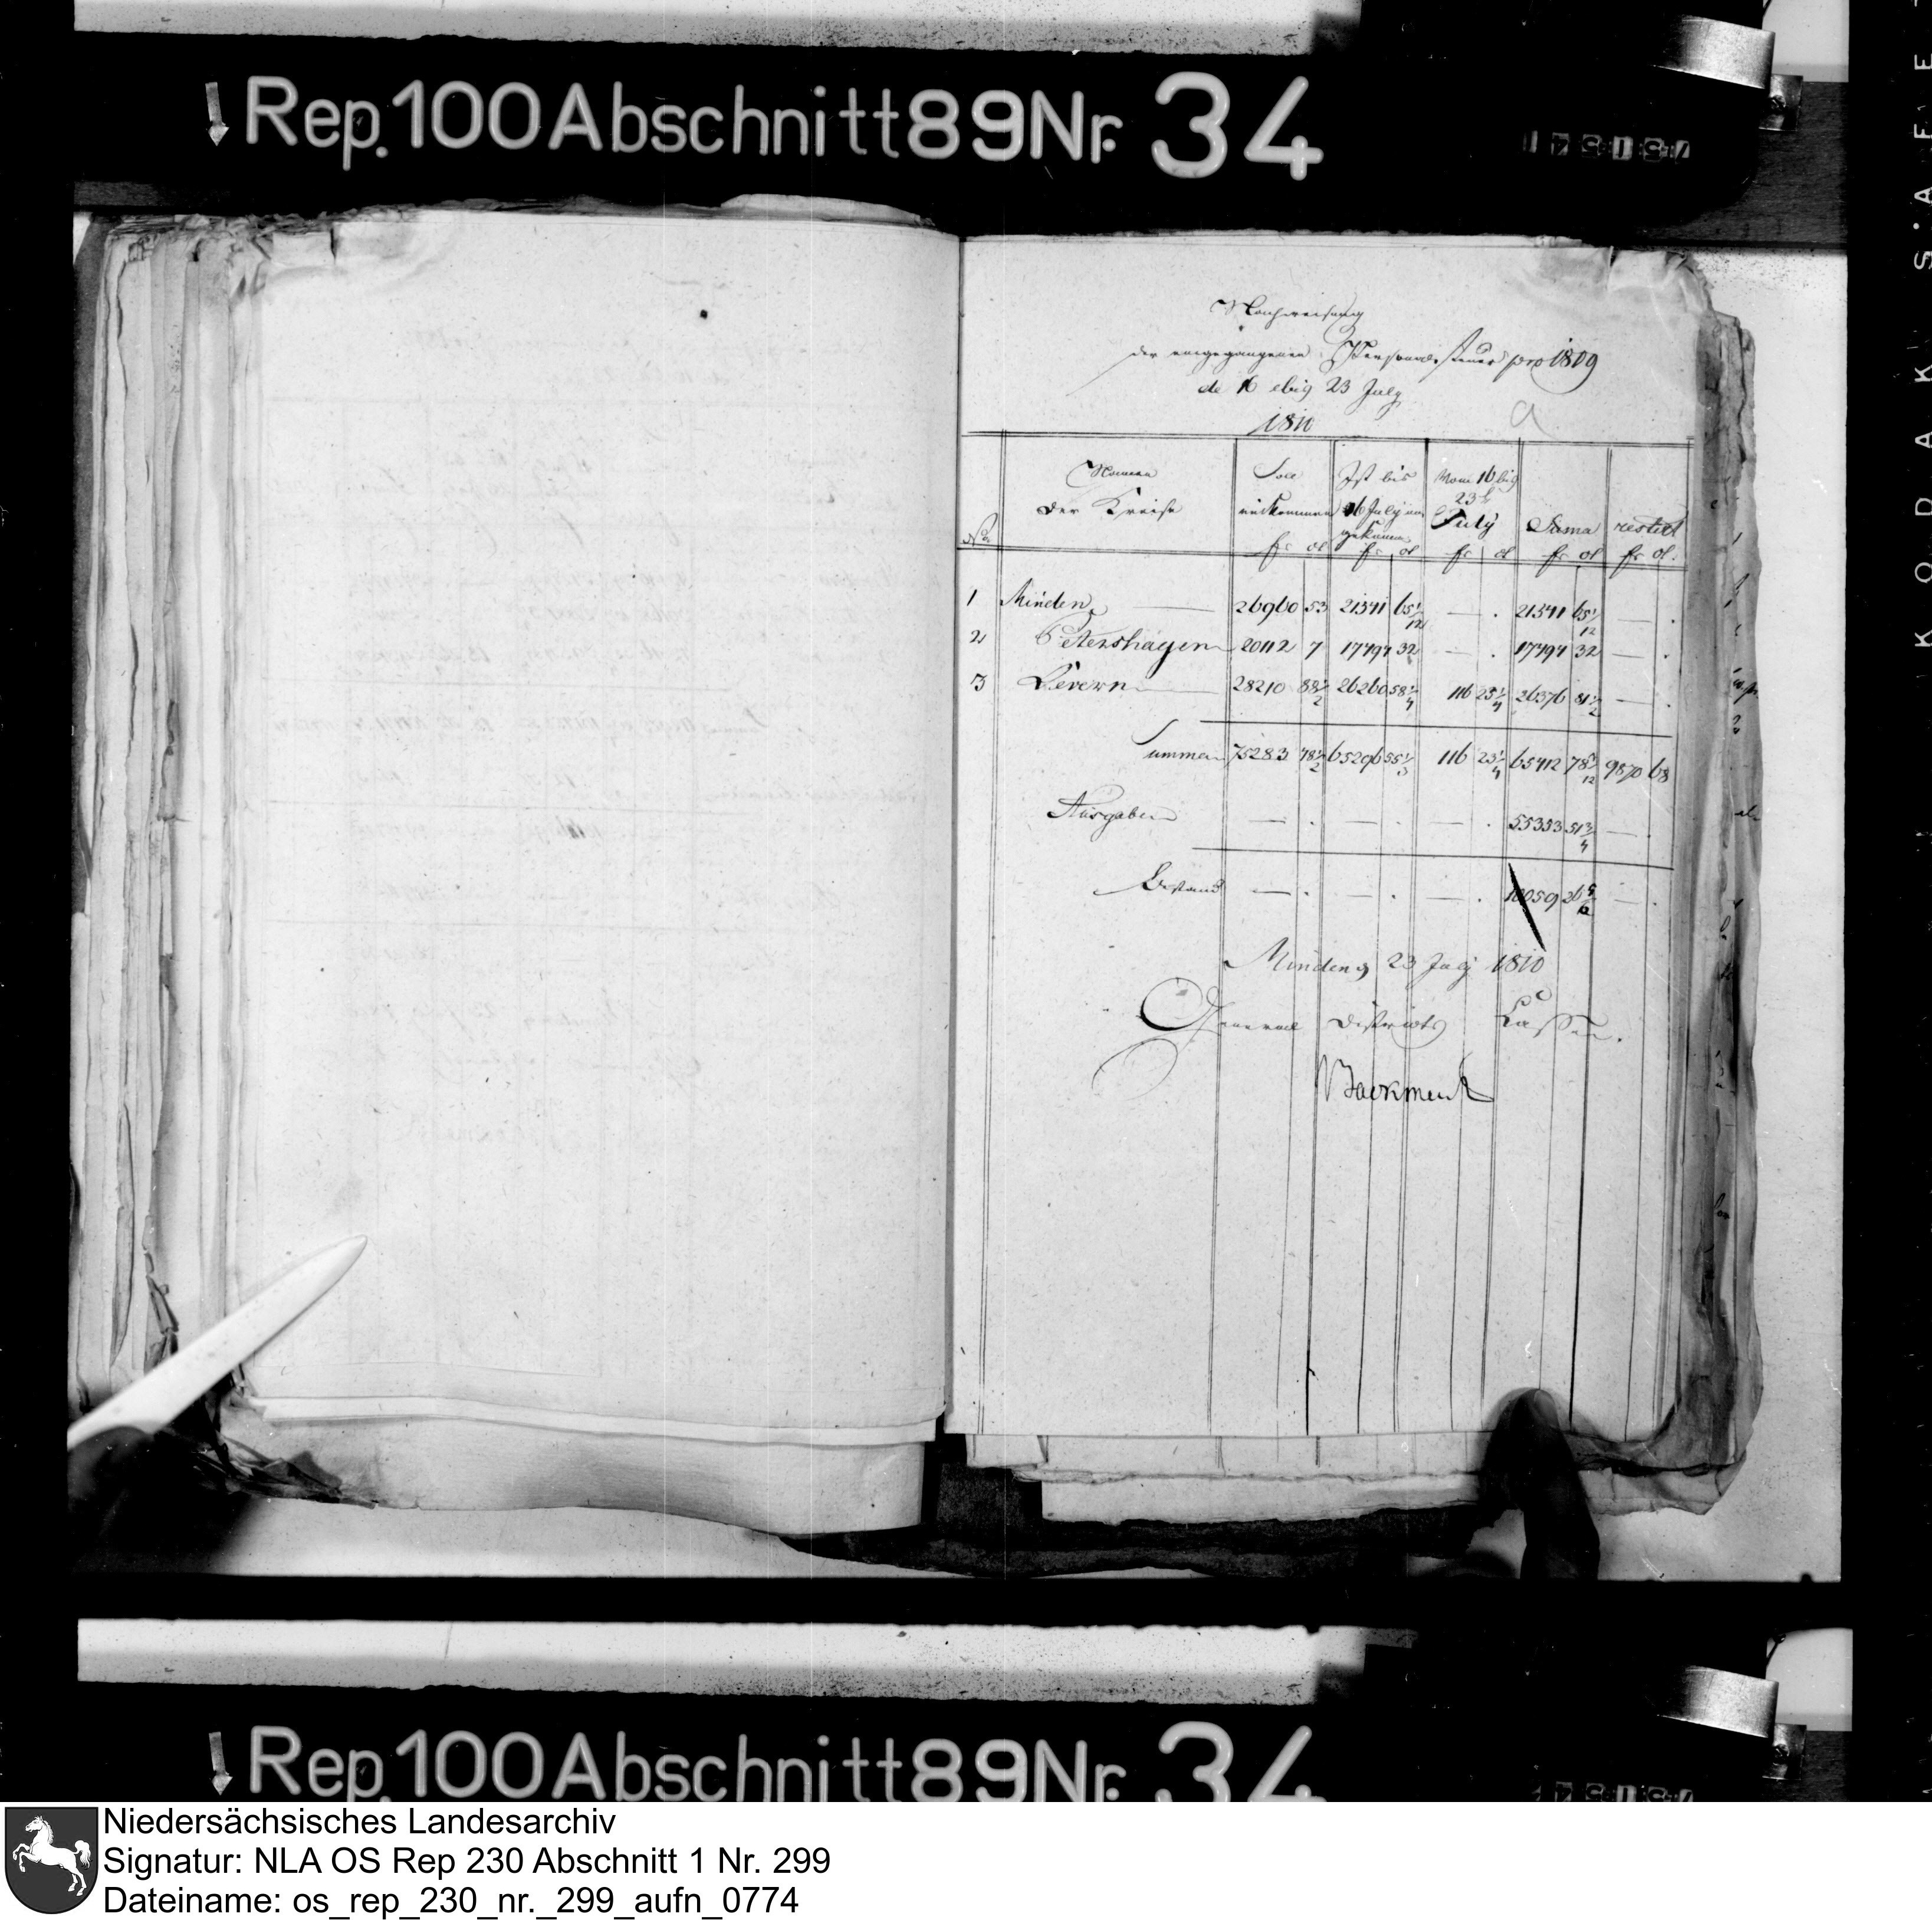 Rep. 100 Abschnitt 89 Nr. 34
Nachweisung
der eingegangenen Personal Steuer pro 1809
de 16 bis 23 July
1810
No.
Namen
der Kreise
Soll
einkommen
fr ct
Ist bis
16 July
gekommen
fr ct
Vom 16 bis
23t
July
fr ct
Suma
fr ct
restirt
fr ct.
1 Minden — 26960 53 21541 65 1/12 — . 21541 65 1/12 — .
2 Petershagen 20112 7 17494 32 — . 17494 32 — .
3 Levern — 28210 88 1/2 26260 58 1/4 116 23 1/4 26376 81 1/2 — .
Summen 75283 48 1/2 65296 55 1/3 116 23 1/4 65412 78 7/12 9870 68
Ausgaben — . — . — . 55353 51 3/4 — .
Bestand — . — . — . 10059 26 5/6 — .
Minden, 23 July 1810
General Districts Casse.
Rep. 100 Abschnitt 89 Nr. 34
KODAK SAFE
Niedersächsisches Landesarchiv
Signatur: NLA OS Rep 230 Abschnitt 1 Nr. 299
Dateiname: os_rep_230_nr._299_aufn_0774